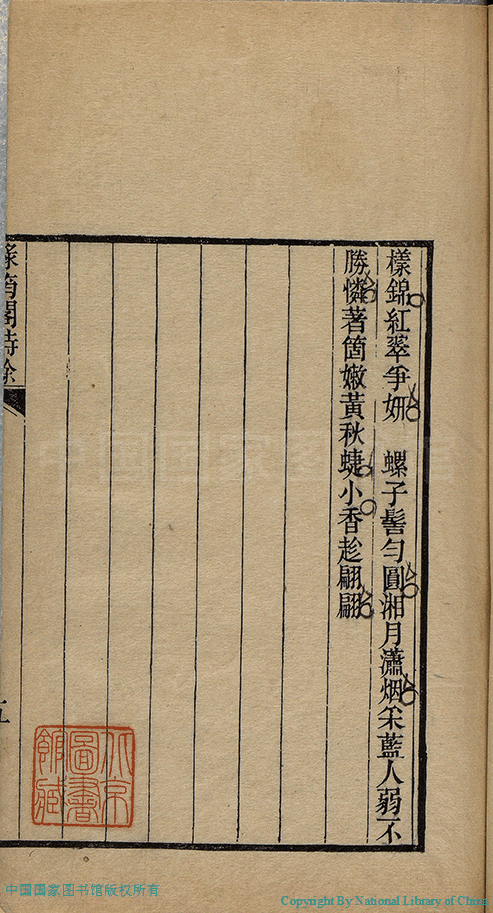 樣錦紅翠爭妍　螺子髻勻圓湘月瀟烟采藍人弱不
勝憐著箇嫩黃秋蜨小香趁翩翩
詩餘
五
北京圖書館藏
中国国家图书馆版权所有
Copyright By National Library of China